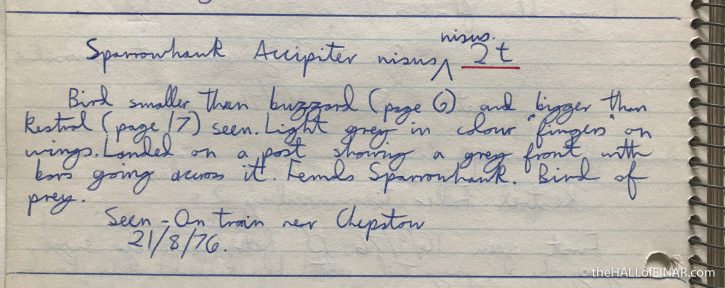 nisus.
Sparrowhawk Accipiter nisus ^ 2t
Bird smaller than buzzard (page 6) and bigger than
Kestral (page 17) seen. Light grey in colour "fingers" on
wings. Landed on a post showing a grey front with
bars going across it. Female Sparrowhawk. Bird of
prey.
Seen - On train near Chepstow
21/8/76.
©theHALLofEINAR.com